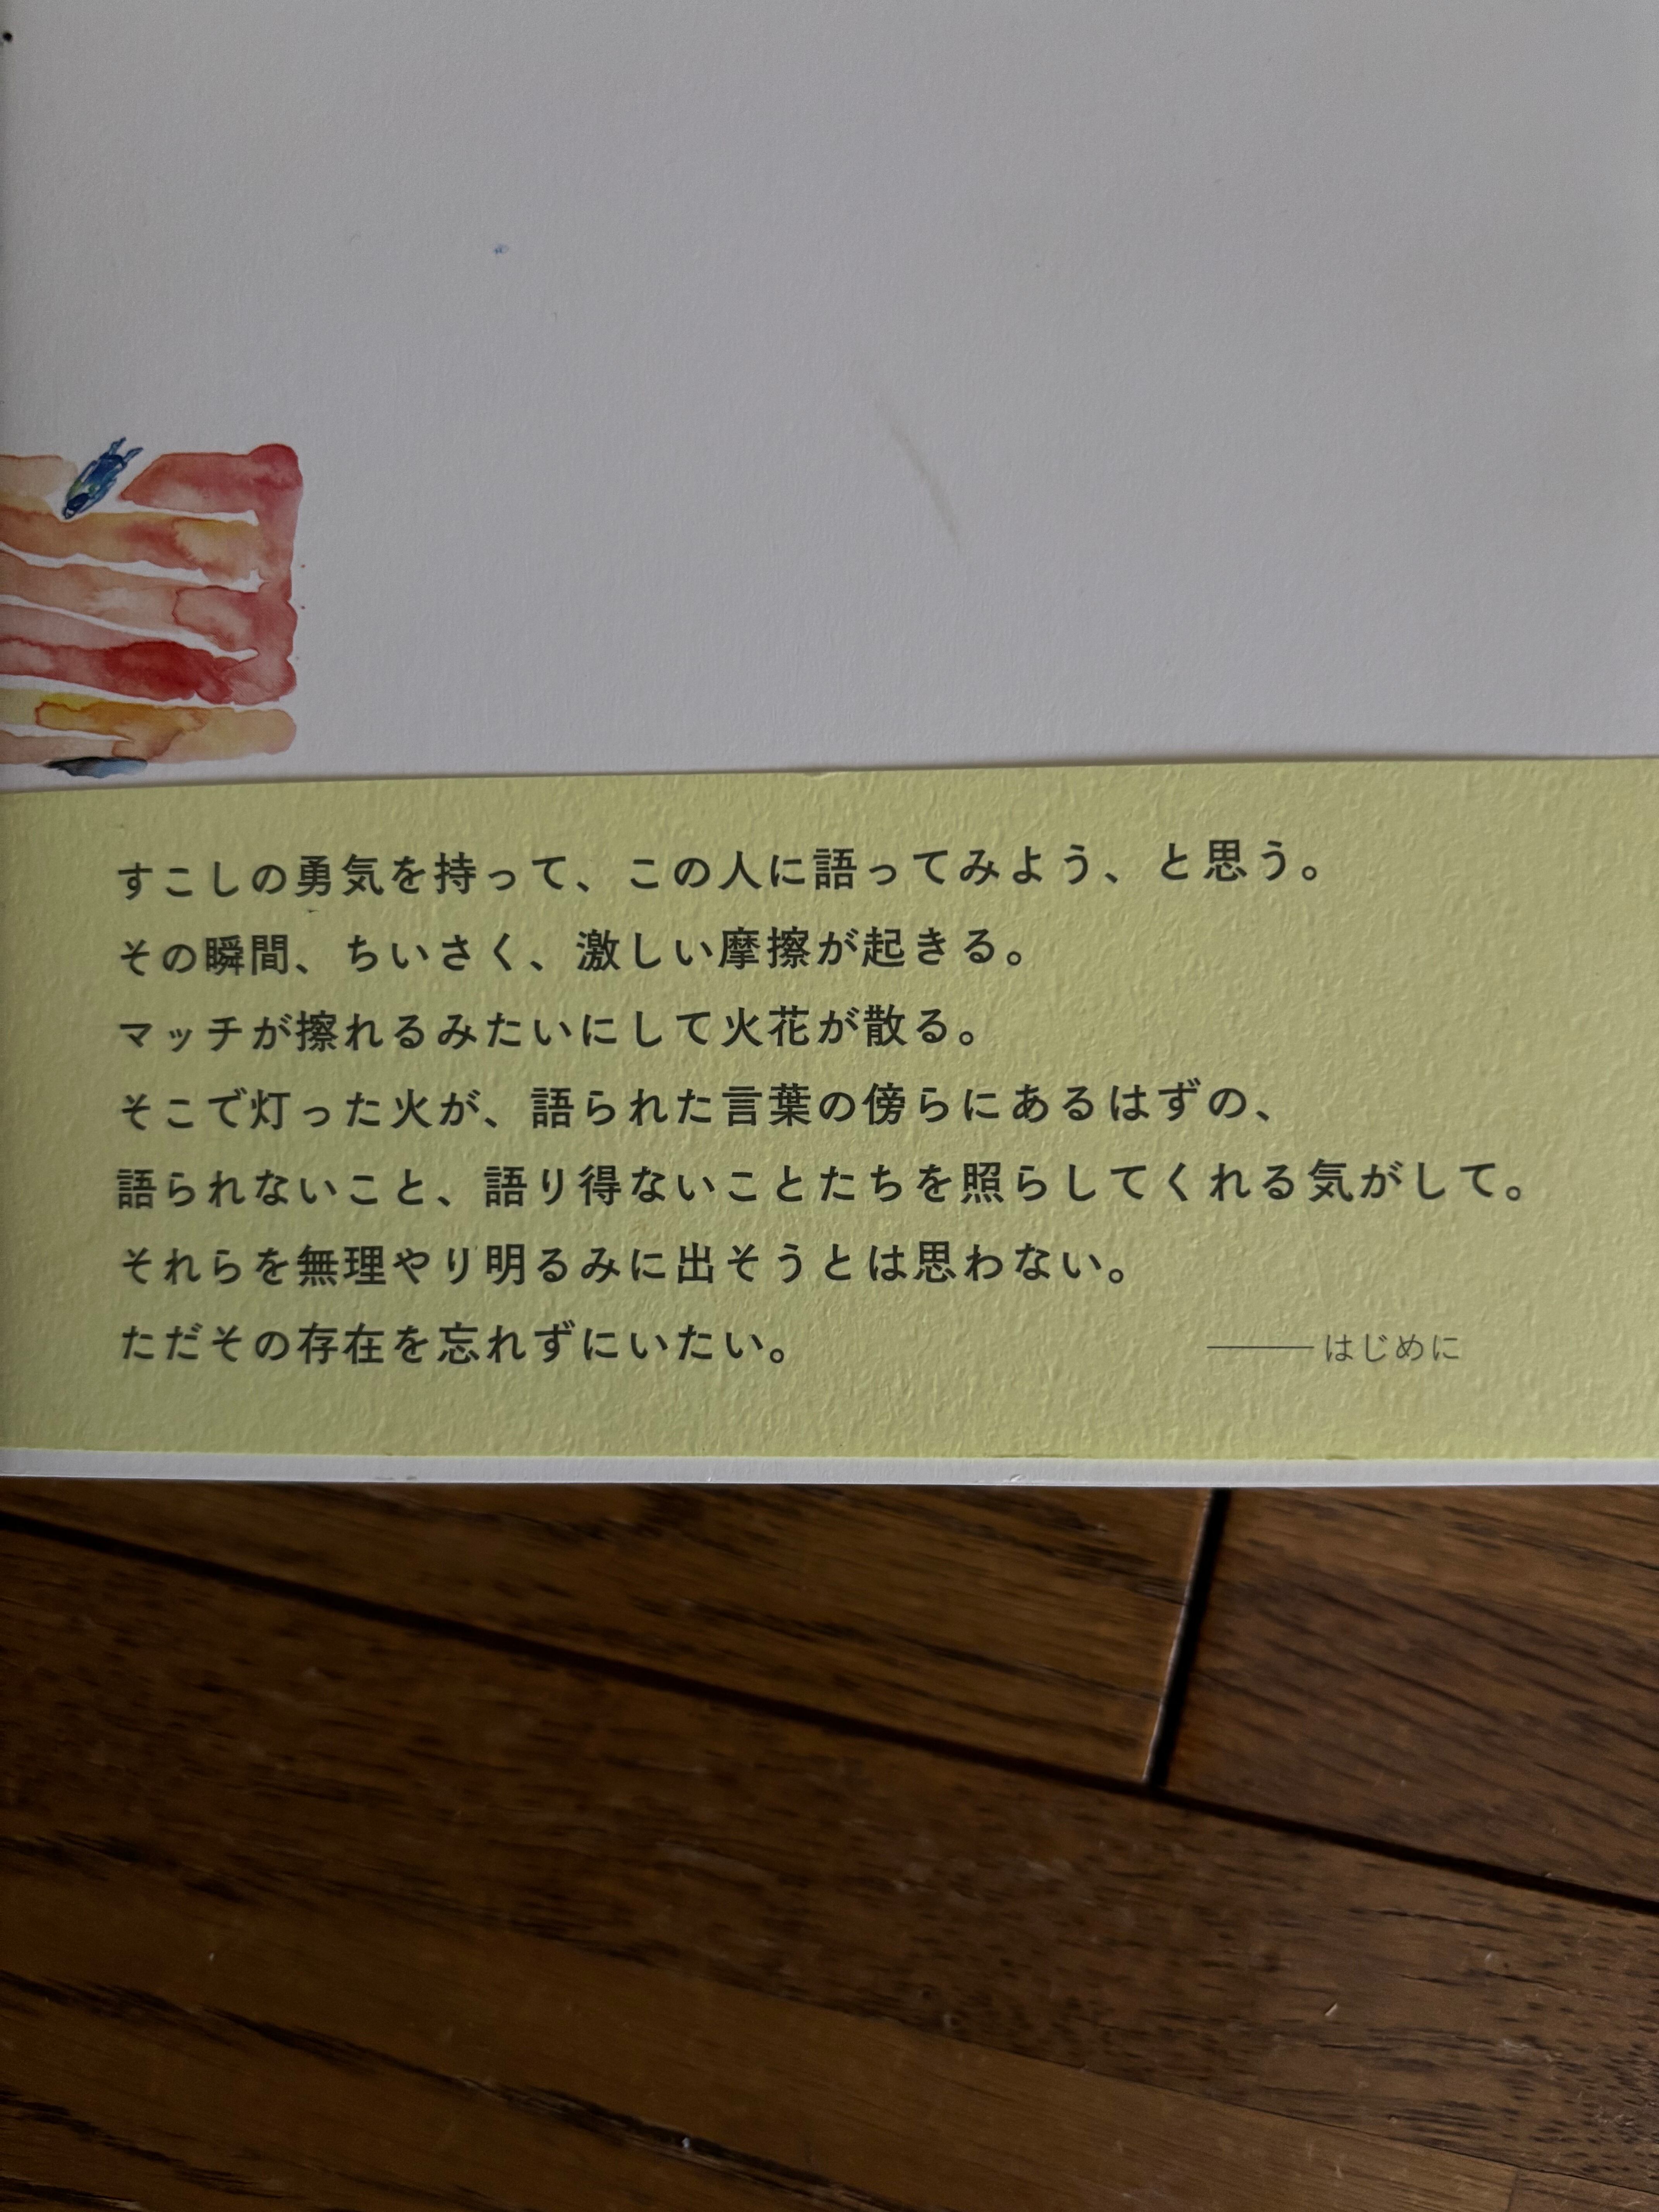 すこしの勇気を持って、この人に語ってみよう、と思う。
その瞬間、ちいさく、激しい摩擦が起きる。
マッチが擦れるみたいにして火花が散る。
そこで灯った火が、語られた言葉の傍らにあるはずの、
語られないこと、語り得ないことたちを照らしてくれる気がして。
それらを無理やり明るみに出そうとは思わない。
ただその存在を忘れずにいたい。
――はじめに